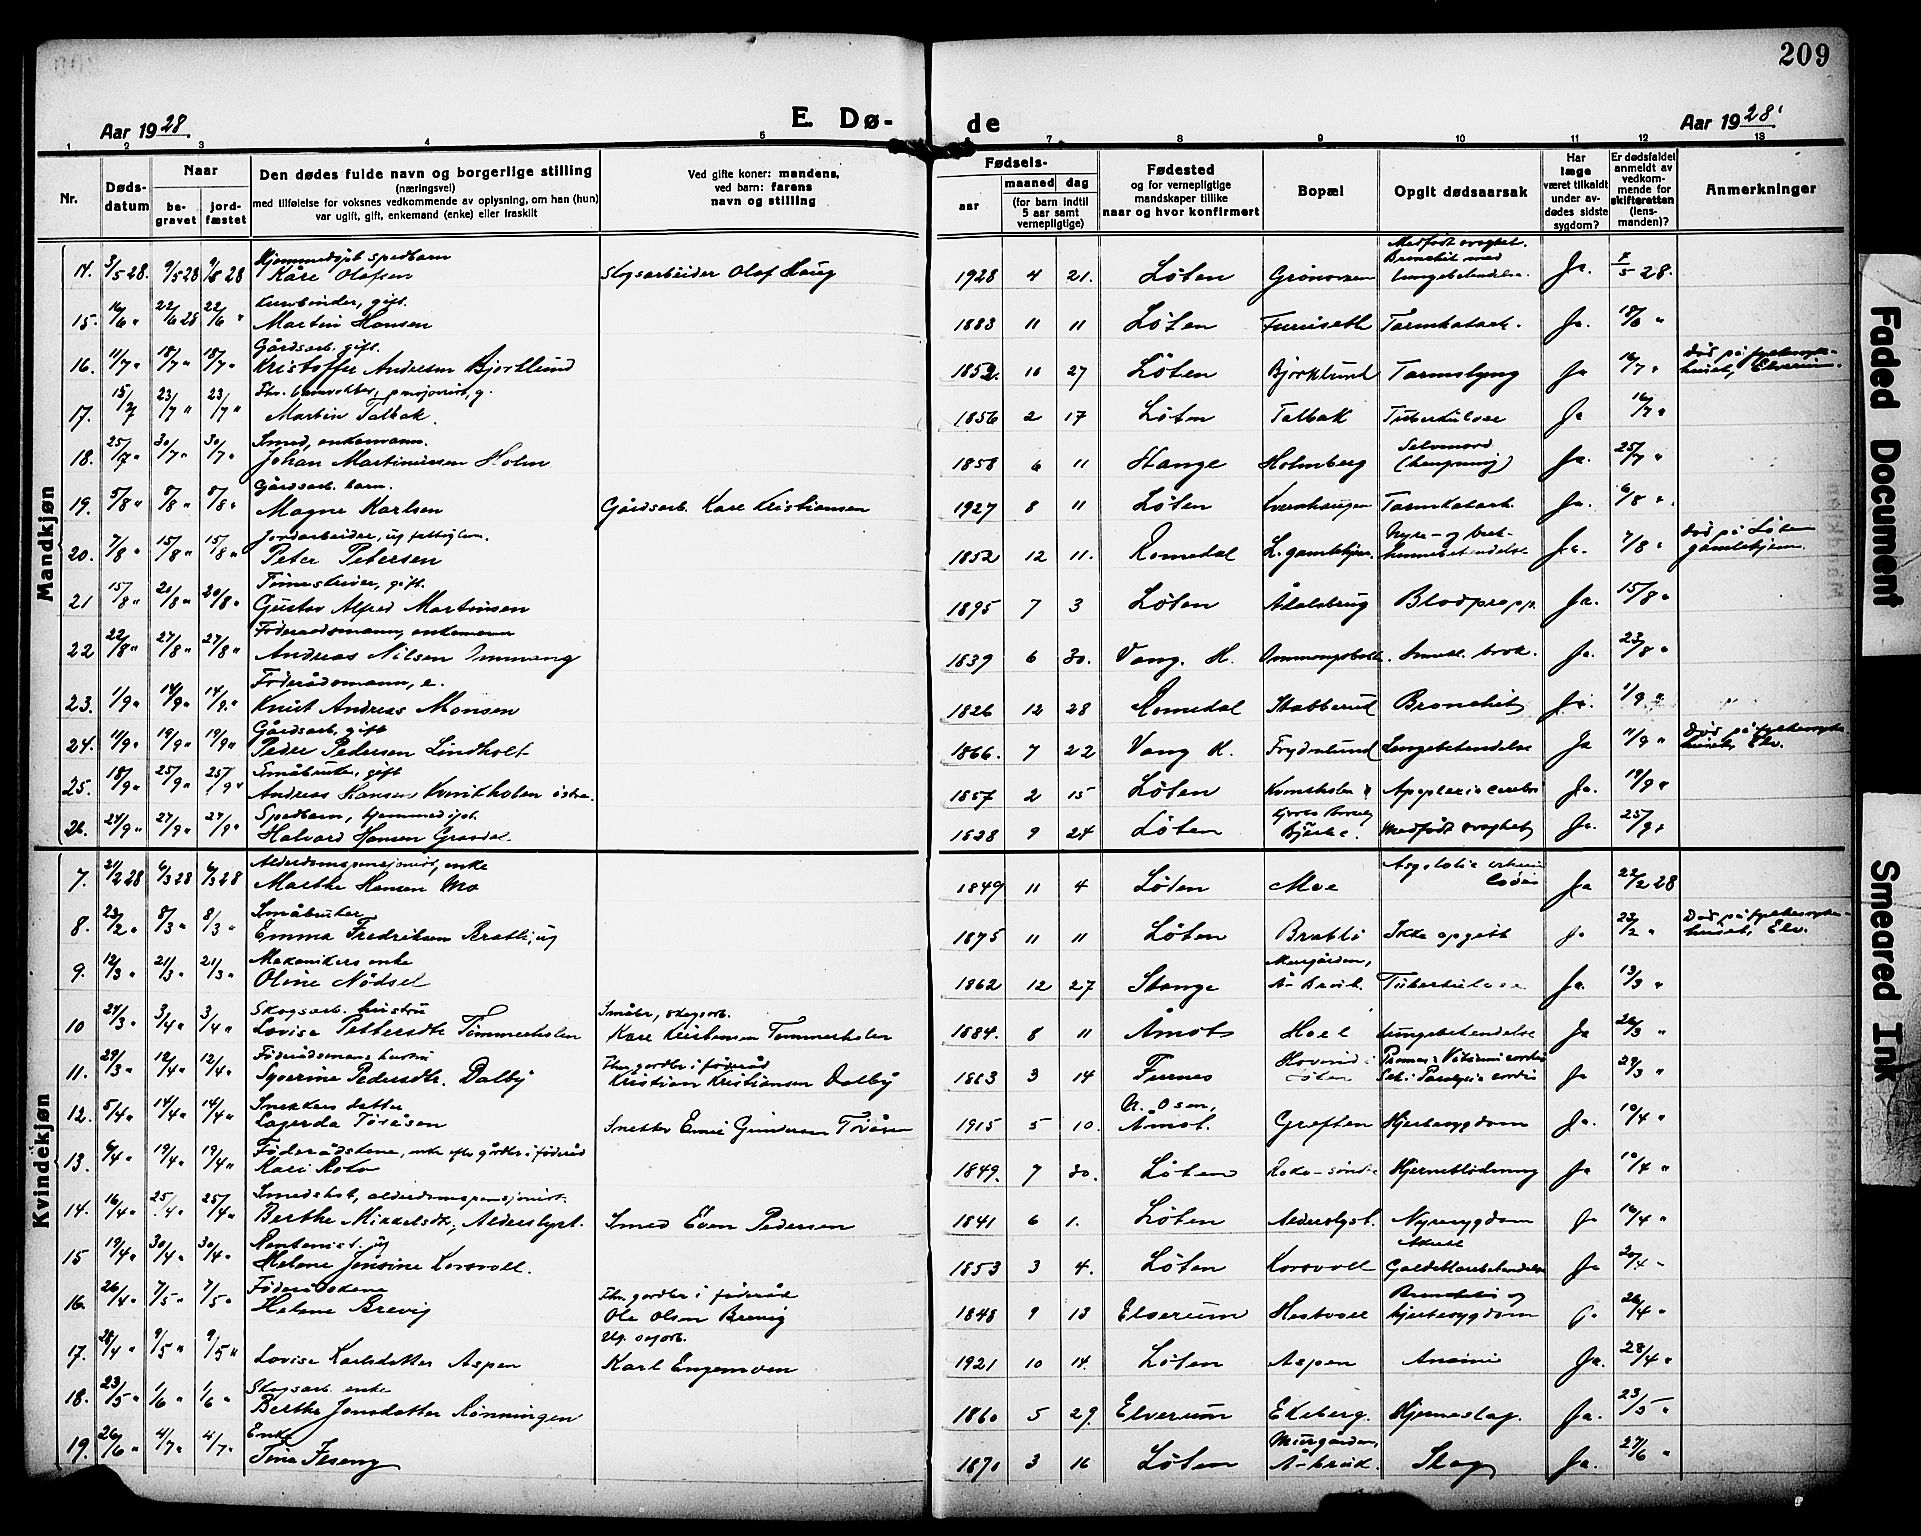 209
Aar 1928.
E. Dø-
de
Aar 1928.
1 2 3 4 5 7 8 9 10 11 12 13
Nr.
Døds-
datum
Naar
be-
gravet
jord-
fæstet
Den dødes fulde navn og borgerlige stilling
(næringsvei)
med tilføielse for voksnes vedkommende av oplysning, om han (hun)
var ugift, gift, enkemand (enke) eller fraskilt
Ved gifte koner: mandens,
ved barn: farens
navn og stilling
Fødsels-
aar
maaned
dag
(for barn indtil
5 aar samt
vernepligtige)
Fødested
og for vernepligtige
mandskaper tillike
naar og hvor konfirmert
Bopæl
Opgit dødsaarsak
Har
læge
været tilkaldt
under av-
dødes sidste
sygdom?
Er dødsfaldet
anmeldt av
vedkom-
mende for
skifteretten
(lens-
manden)?
Anmerkninger
Mandkjøn
14. 3/5 28. 9/5 28 9/5 28 Hjemmedøpt spedbarn
Kåre Olafsen Skogsarbeider Olaf Haug 1928 4 21. Løten Medfødt svaghet. Bronchit med lungebetendelse Ja. 7/5 28.
15. 16/6 " 22/6 28 22/6 " gift.
Martin Hansen 1883 11 11 Løten Furuseth Tarmkatarh. Ja. 18/6 "
16. 11/7 " 18/7 " 18/7 " Gårdsarb. gift.
Kristoffer Andersen Bjørklund 1852. 10 27 Løten Bjørklund Tarmslyng Ja 16/7 " Død på fylkessyke-
huset, Elverum.
17. 15/7 23/7 " 23/7 " Martin Talbak 1856 2 17 Løten Talbak Tuberkulose Ja 16/7 "
18. 25/7 " 30/7 " 30/7 " Smed, enkemann.
Johan Martinussen Holm 1858 6 11 Stange Holmberg Selvmord
(hengning) Ja. 25/7 "
19. 5/8 " 8/8 " 8/8 " Gårdsarb. barn.
Magne Karlsen Gårdsarb. Karl Kristiansen 1927 8 11 Løten Tarmkatarh. Ja. 6/8 "
20. 7/8 " 15/8 " 15/8 " Jordarbeider, ug fattiglem.
Peter Petersen 1852 12 11. Romedal L. gamlehjem Nyre- og Ja. 7/8 " Død på Løten
gamlehjem
21 15/8 " 20/8 " 20/8 " gift.
Gustav Alfred Martinsen 1895 7 3 Løten Ådalsbrug Blodpropp. Ja. 15/8 "
22 22/8 " 27/8 " 27/8 " Føderaadsmann, enkemann
Andreas Nilsen Immvang 1839 6 30. Vang. H. brok. Ja. 23/8 "
23. 1/9 " 14/9 " 14/9. " Føderådsmann, e.
Knut Andreas Monsen 1826 12 28 Romedal Stabberud Bronchit Ja. 1/9 "
24. 11/9 " 19/9 " 19/9 " Gårdsarb. gift
Peder Pedersen Lindholt 1866. 7 22 Vang H. Frydenlund Lungebetendelse Ja 11/9 " Død på fylkessyke-
huset, Elv.
25. 18/9 " 25/9 " 25/9 " Småbruker, gift
Andreas Hansen Kvikholen østre. 1857 2 15 Løten Apoplexia cerebri Ja. 19/9 "
26. 24/9 " 27/9 " 27/9 " Spedbarn, hjemmedøpt.
Halvard Hansen 1928 9 24 Løten Medfødt svaghet Ja. 25/9 "
Kvindekjøn
7. 21/2 28 6/3 28 6/3 28 Alderdomspensjonist, enke
Marthe Hansen Mo 1849 11 4 Løten Moe Ja 22/2 28
8. 23/2 " 8/3 " 8/3 " Småbruker
Emma Fredriksen Bratli, ug 1875 11 11 Løten Bratli Ikke opgitt Ja 23/2 " Død på fylkessyke-
huset, Elv.
9. 12/3 " 21/3 " 21/3 " Mekanikers enke
Oline Nødsel 1862 12 27 Stange Murgården,
Å-bruk. Tuberkulose Ja. 13/3 "
10 24/3 " 3/4 " 3/4 " Skogsarb. hustru
Lovise Pettersdtr Tømmerholen Småbr., skogsarb.
Karl Kristiansen Tømmerholen 1884. 8 11 Åmot Hoel Lungebetendelse Ja 26/3 "
11. 29/3 " 12/4 " 12/4 " Føderådsmans hustru
Syverine Pedersdtr. Dalby Fhv. gårdbr i føderåd
Kristian Kristiansen Dalby 1863 3 14 Furnes Løten Ja 29/3 "
12. 5/4 " 14/4 " 14/4 " Snekkers datter
Lagerda Toråsen Snekker Gundersen Toråsen 1915 5 10. N. Osen,
Åmot. Greften Hjertesygdom Ja. 10/4 "
13. 6/4 " 19/4 " 19/4 " Føderådskone, enke efter gårdbr i føderåd
Kari Roko 1849. 7 30. Løten Roko-søndre Hjerneblødning Ja 10/4 "
14. 16/4 " 25/4 " 25/4 " alderdomspensjonist.
Berthe Mikkelsdtr, Alderslyst. Smed Even Pedersen 1841 6 1. Løten Alderslyst. Nyresygdom Ja 16/4 "
15 19/4 " 30/4 " 30/4 " Rentenist. ug
Helene Jensine Korsvoll. 1853 3 4. Løten Korsvoll Akutt
Galdeblærebetendelse Ja 20/4 "
16. 26/4 " 7/5 " 7/5 " Føderådskone
Helene Brevig Fhv. gårdbr i føderåd
Ole Olsen Brevig 1848 9 13 Elverum Bronchitis og
hjertesygdom Ja 26/4 "
17. 28/4 " 9/5 " 9/5 " Lovise Karlsdatter Aspen Karl Engemoen 1921 10 14. Løten Aspen Anæmi Ja. 28/4 "
18. 23/5 " 1/6 " 1/6 " Skogsarb. enke
Berthe Jensdatter Rønningen 1860 5 29 Elverum Ekeberg. Hjerneslag. Ja. 23/5 "
19. 26/6 " 4/7 " 4/7 " Enke
Tina 1870 3 16 Løten Murgården,
Å-bruk. Slag Ja. 27/6 "
Faded Document
Smeared Ink